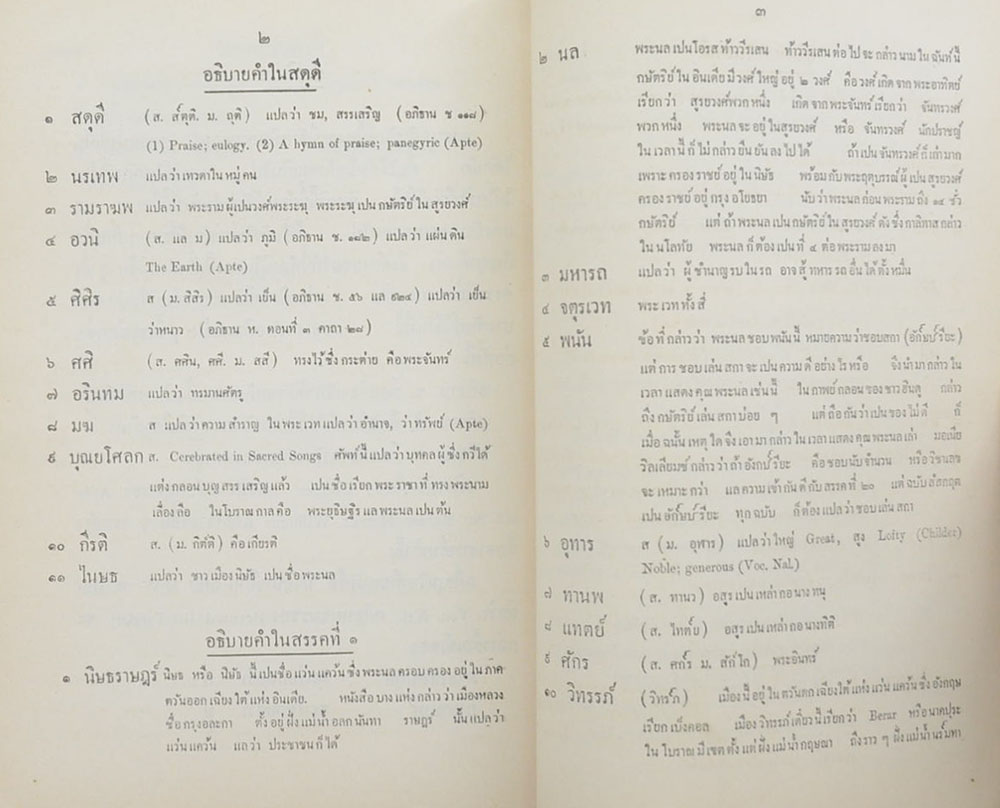 ๒
อธิบายคำในสดุดี
๑ สดุดี (ส. สฺตุติ. ม. ถุติ) แปลว่า ชม, สรรเสริญ (อภิธาน ช ๑๑๘)
(1) Praise; eulogy. (2) A hymn of praise; panegyric (Apte)
๒ นรเทพ แปลว่าเทวดาในหมู่คน
๓ รามราฆพ แปลว่า พระรามผู้เปนวงศ์พระระฆุ พระระฆุเปนกษัตริย์ในสุรยวงศ์
๔ อวนี (ส. แล ม) แปลว่า ภูมิ (อภิธาน ช. ๑๘๒) แปลว่า แผ่นดิน
The Earth (Apte)
๕ ศิศิร ส (ม. สิสิร) แปลว่า เย็น (อภิธาน ช. ๕๖ แล ๙๒๔) แปลว่า เย็น
ว่าหนาว (อภิธาน ห. ตอนที่ ๓ คาถา ๒๘)
๖ ศศี (ส. ศศิน, ศศี. ม. สสี) ทรงไว้ซึ่งกระต่าย คือพระจันทร์
๗ อรินทม แปลว่า ทรมานศัตรู
๘ มฆ ส แปลว่าความสำราญ ในพระเวทแปลว่าอำนาจ, ว่าทรัพย์ (Apte)
๙ บุณยโศลก ส. Cerebrated in Sacred Songs ศัพท์นี้แปลว่าบุคคลผู้ซึ่งกวีได้
แต่งกลอนบุญสรรเสริญแล้ว เปนชื่อเรียกพระราชาที่ทรงพระนาม
เลื่องลือ ในโบราณกาลคือ พระยุธิษฐิรแลพระนลเปนต้น
๑๐ กีรติ ส. (ม. กิตติ) คือเกียรติ
๑๑ ไนษธ แปลว่า ชาวเมืองนิษัธ เปนชื่อพระนล
อธิบายคำในสรรคที่ ๑
๑ นิษธราษฎร์ นิษธ หรือ นิษัธ นี้เปนชื่อแว่นแคว้นซึ่งพระนลครอบครองอยู่ในภาค
ตวันออกเฉียงใต้แห่งอินเดีย. หนังสือบางแห่งกล่าวว่าเมืองหลวง
ชื่อกรุงอละกา ตั้งอยู่ฝั่งแม่น้ำอลกนันทา ราษฎร์ นั้นแปลว่า
แว่นแคว้น แลว่า ประชาชนก็ได้
๓
๒ นล พระนลเปนโอรสท้าววีรเสน ท้าววีรเสนต่อไปจะกล่าวนามในฉันท์นี้
กษัตริย์ในอินเดียมีวงศ์ใหญ่อยู่ ๒ วงศ์ คือวงศ์เกิดจากพระอาทิตย์
เรียกว่า สุรยวงศ์พวกหนึ่ง เกิดจากพระจันทร์เรียกว่า จันทรวงศ์
พวกหนึ่ง พระนลจะอยู่ในสุรยวงศ์ หรือ จันทรวงศ์ นักปราชญ์
ในเวลานี้ก็ไม่กล้ายืนยันลงไปได้ ถ้าเปนจันทรวงศ์ก็เก่ามาก
เพราะครองราชย์อยู่ในนิษัธ พร้อมกับพระฤตุบรรณ์ผู้เปนสุรยวงศ์
ครองราชย์อยู่กรุงอโยธยา นับว่าพระนลก่อนพระรามถึง ๑๔ ชั่ว
กษัตริย์ แต่ถ้าพระนลเปนกษัตริย์ในสุรยวงศ์ดังซึ่งกาลิทาสกล่าว
ในนโลทัย พระนลก็ต้องเปนที่ ๔ ต่อพระรามลงมา
๓ มหารถ แปลว่า ผู้ชำนาญรบในรถ อาจสู้ทหารรถอื่นได้ตั้งหมื่น
๔ จตุรเวท พระเวททั้งสี่
๕ พนัน ข้อที่กล่าวว่า พระนลชอบพนันนี้ หมายความว่าชอบสกา (อักษปรียะ)
แต่การชอบเล่นสกาจะเปนความดีอย่างไรหรือ จึงนำมากล่าวใน
เวลาแสดงคุณพระนลเช่นนี้ ในกาพย์กลอนของชาวฮินดู กล่าว
ถึงกษัตริย์เล่นสกาบ่อย ๆ แต่ถือกันว่าเปนของไม่ดี ก็
เมื่อฉนั้น เหตุใดจึงเอามากล่าวในเวลาแสดงคุณพระนลเล่า มอเนีย
วิลเลียมซ์กล่าวว่าถ้าอังกปรียะ คือชอบนับจำนวน หรือวิชาเลข
จะเหมาะกว่า แลความเข้ากันดีกับสรรคที่ ๒๐ แต่ฉบับสํสกฤต
เปนอักษปรียะ ทุกฉบับ ก็ต้องแปลว่าชอบเล่นสกา
๖ อุทาร ส (ม. อุฬาร) แปลว่าใหญ่ Great, สูง Lofty (Childer)
Noble; generous (Voc. Nal.)
๗ ทานพ (ส. ทานว) อสูรเปนเหล่ากอนางทนุ
๘ แทตย์ (ส. ไทตฺย) อสูรเปนเหล่ากอนางทิติ
๙ ศักร (ส. ศกฺร ม. สกฺโก) พระอินทร์
๑๐ วิทรรภ์ (วิทรฺภ) เมืองนี้อยู่ในตวันตกเฉียงใต้แห่งแว่นแคว้นซึ่งอังกฤษ
เรียกเบ็งคอล เมืองวิทรรภ์เดี๋ยวนี้เรียกว่า Berar หรือนาคปุระ
ในโบราณมีเขตตั้งแต่ฝั่งแม่น้ำกฤษณา ถึงราว ๆ ฝั่งแม่น้ำนรมทา